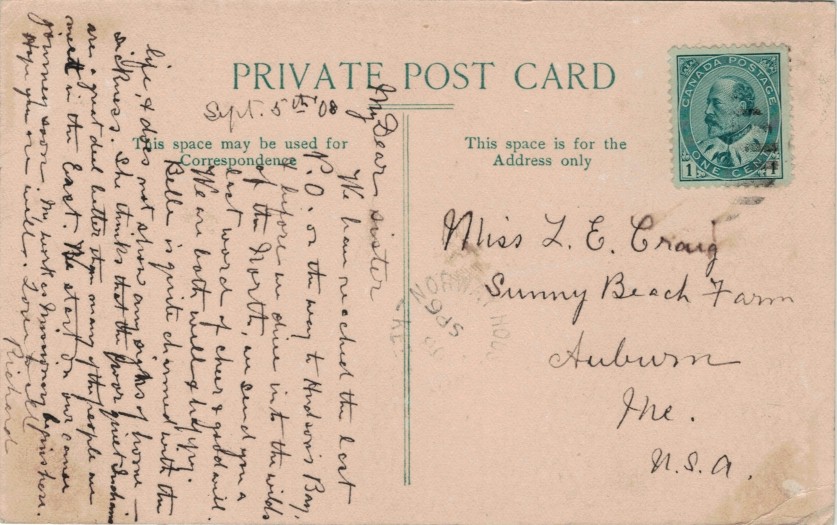 PRIVATE POST CARD
This space may be used for
Correspondence
This space is for the
Address only
CANADA POSTAGE
ONE CENT
1 1
Sept. 5th '08
My Dear sister
We have reached the last
P.O. on the way to Hudson's Bay,
& before we drive into the wilds
of the North, we send you a
last word of cheer & good will.
We are both well & happy.
Belle is quite charmed with the
life, & does not show any signs of home-
sickness. She thinks that the poor quiet Indians
are a great deal better than many of the people we
meet in the East. We start on our canoe
journey soon. My work as Missionary begins here.
Hope you are well. Love to all
Richard
Miss L. E. Craig
Sunny Beach Farm
Auburn
Me.
U.S.A.
NORWAY HOU
SP 6